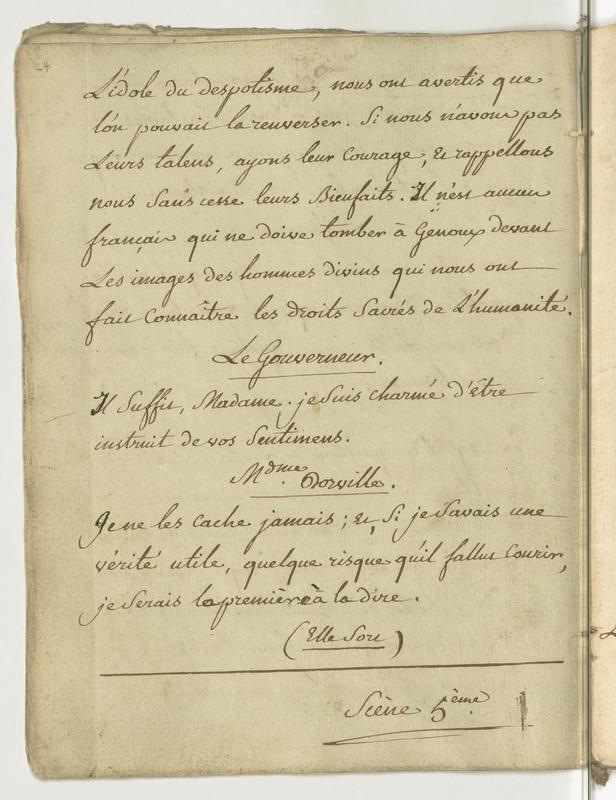 24
L'idole du despotisme, nous ont avertis que
l'on pouvait la renverser. Si nous n'avons pas
Leurs talens, ayons leur courage, Et rappellons
nous sans cesse leurs Bienfaits. Il n'est aucun
français qui ne doive tomber à Genoux devant
Les images des hommes divins qui nous ont
fait connaître les droits sacrés de L'humanité.
Le Gouverneur.
Il suffit, Madame. je suis charmé d'Etre
instruit de vos Sentimens.
Mdme. Dorville.
Je ne les cache jamais; Et, Si je savais une
vérité utile, quelque risque qu'il fallut courir,
je serais la première à la dire.
(Elle Sort)
Scène 5ème